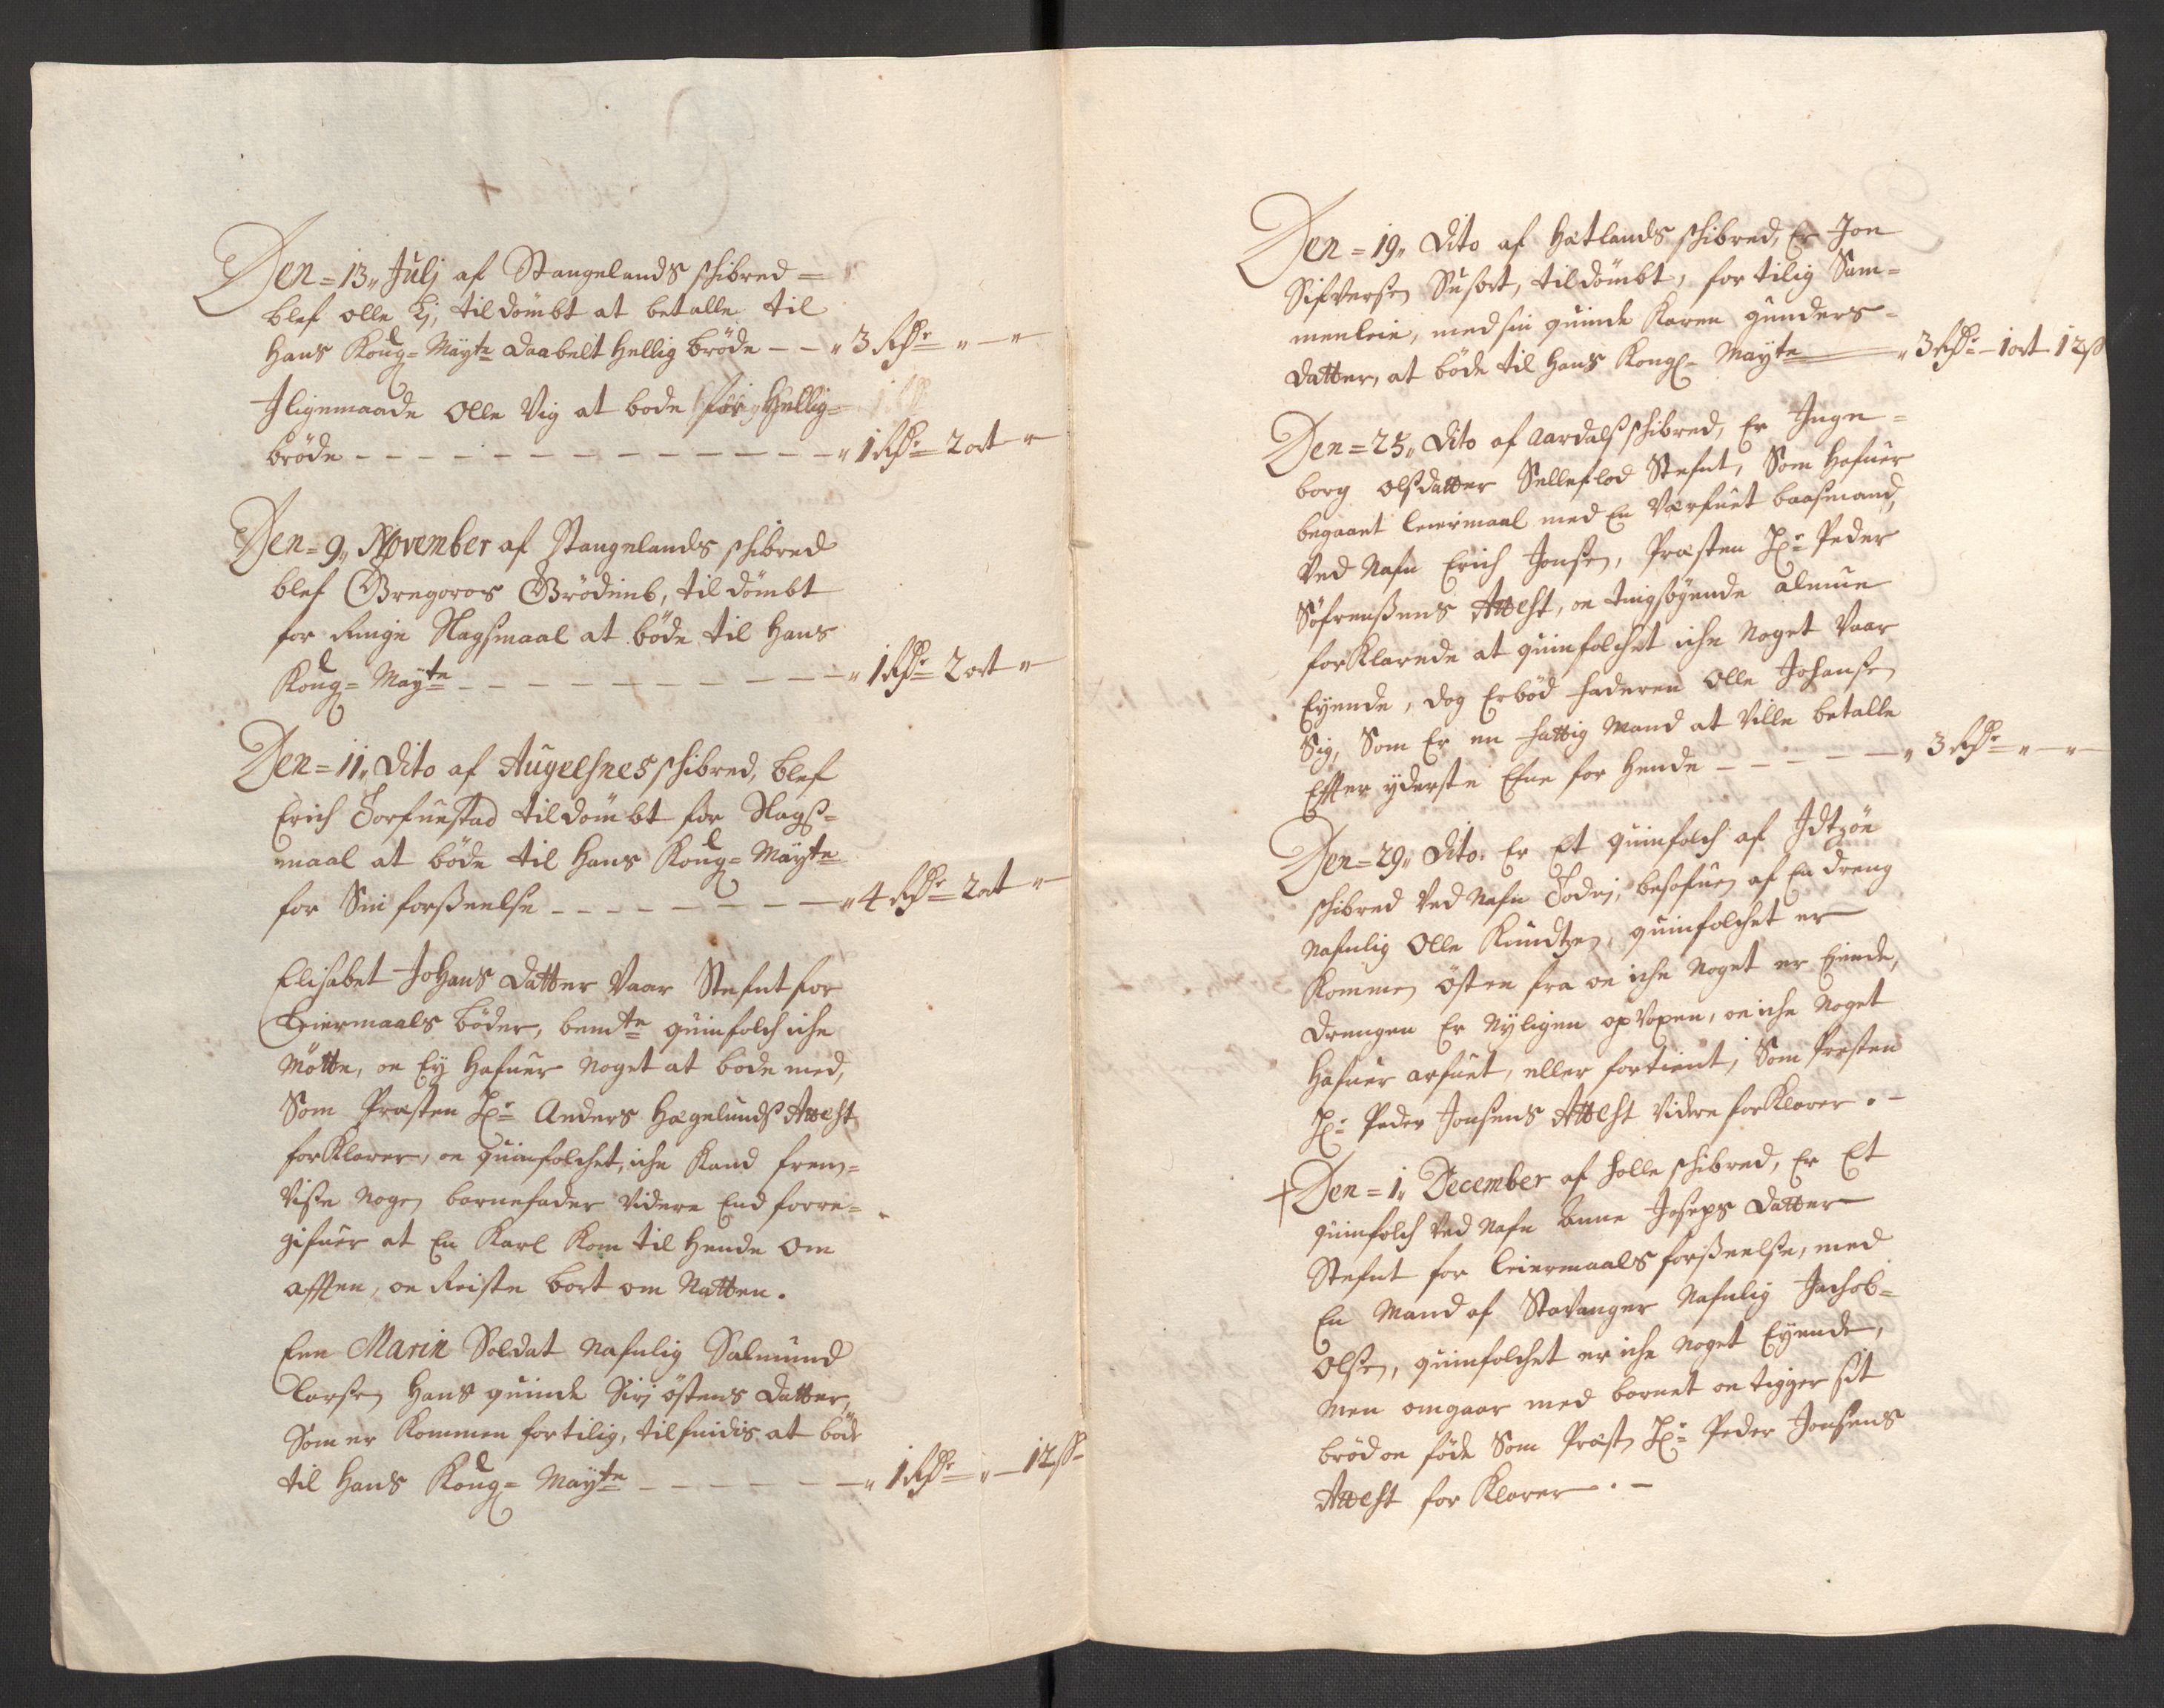 Den = 13„ Julj af Stangelands schibred =
blef olle Lj, tildömbt at betalle til
Hans Kong= Mayte daabelt Hellig bröde - - „ 3 Rdr= „ - „
Iligemaade Olle Vig at bode for Hellig=
bröde - - - - - - - - - - - „ 1 Rdr= 2 ort „
Den = 9„ November af Stangelands schibred
blef Gregoros Grödimb, tildömbt
for Ringe Slagsmaal at böde til Hans
Kong= Mayte - - - - - - - - - „ 1 Rdr= 2 ort „
Den = 11„ Dito af Augelsnes schibred, blef
Erich Torfuestad tildömbt for Slags=
maal at böde til Hans Kong= Mayte
for Sin forßeelse - - - - - - - - „ 4 Rdr= 2 ort „
Elisabet Johans datter Vaar Stefnt for
Leiermaals böder, bemte quinfolch iche
Mötte, oc Ey Hafuer noget at bode med,
Som Præsten Hr= Anders Hægelunds Attest
forklarer, oc quinfolchet, iche Kand frem=
Viße nogen barnefader Videre End forre=
gifuer at En Karl Kom til Hende Om
afften, oc Reiste bort om Natten.
Enn Marin Soldat Nafnlig Salmund
Larsen Hans quinde Sirj östens datter,
Som er Kommen fortilig, tilfindis at böde
til Hans Kong= Mayte - - - - - - „ 1 Rdr= „ - 12 ß
Den = 19„ Dito af Hetlands schibred, Er Jon
Sifversen Susort, tildömbt, for tilig Sam=
menleie, med sin quinde Karen gunders=
datter, at böde til Hans Kongl= Mayte „ 3 Rdr= - 1 ort 12 ß
Den = 25„ Dito af Aardals schibred, Er Inge=
borg olsdatter Selleflod Stefnt, Som Hafuer
begaaet leiermaal med En Værfuet baasmand,
Ved Nafn Erich Jonsen, Præsten Hr= Peder
Söfrensens Attest, oc tingsögende almue
forklarede at quinfolchet iche Noget Vaar
Eyende, dog Erböd faderen Olle Johansen
Sig, Som Er en fattig Mand at Ville betalle
Effter yderste Efne for Hende - - - - - „ 3 Rdr= „ - „
Den = 29„ Dito Er Et quinfolch af Idtzöe
schibred Ved Nafn Todrj, besofuen af En dreng
Nafnlig Olle Knudtzen, quinfolchet er
Kommen östen fra oc iche Noget er Eiende,
drengen Er Nyligen opVoxen, oc iche Noget
Hafuer arfuet, eller fortient, Som Presten
Hr= Peder Jonsens Attest Videre forklarer. -
+ Den = 1„ December af Holle schibred, Er Et
quinfolch Ved Nafn Anne Joseps datter
Stefnt for leiermaals forßeelse, med
En Mand af Stavanger Nafnlig Jachob=
Olsen, quinfolchet er iche Noget Eyende,
Men omgaar med barnet oc tigger sit
bröd oc föde Som Præsten Hr= Peder Jonsens
Attest forklarer. -